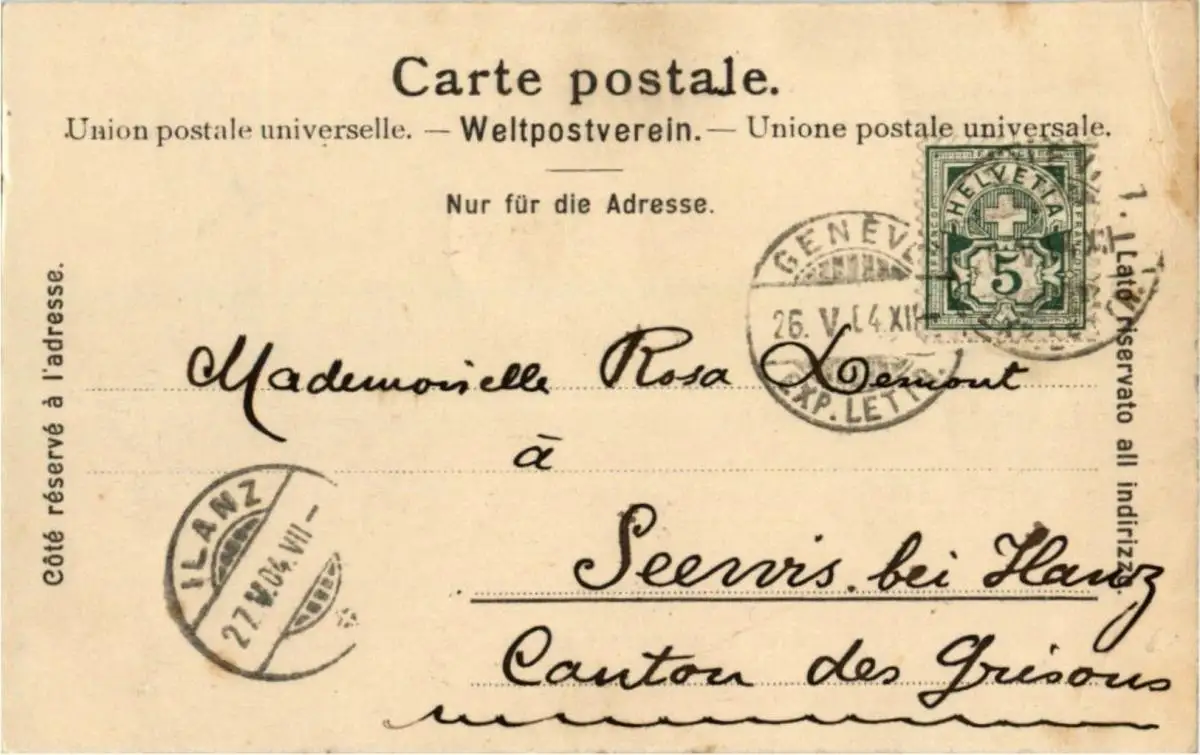 Carte postale.
Union postale universelle. — Weltpostverein. — Unione postale universale.
Nur für die Adresse.
Côté réservé à l'adresse.
Lato riservato all indirizzo.
FRANCO
HELVETIA
FRANCO
5
GENÈVE
26. V. 04 XII
EXP. LETTR.
Mademoiselle Rosa Demont
à
Seewis bei Ilanz
Canton des Grisons
ILANZ
27. V. 04. VII –